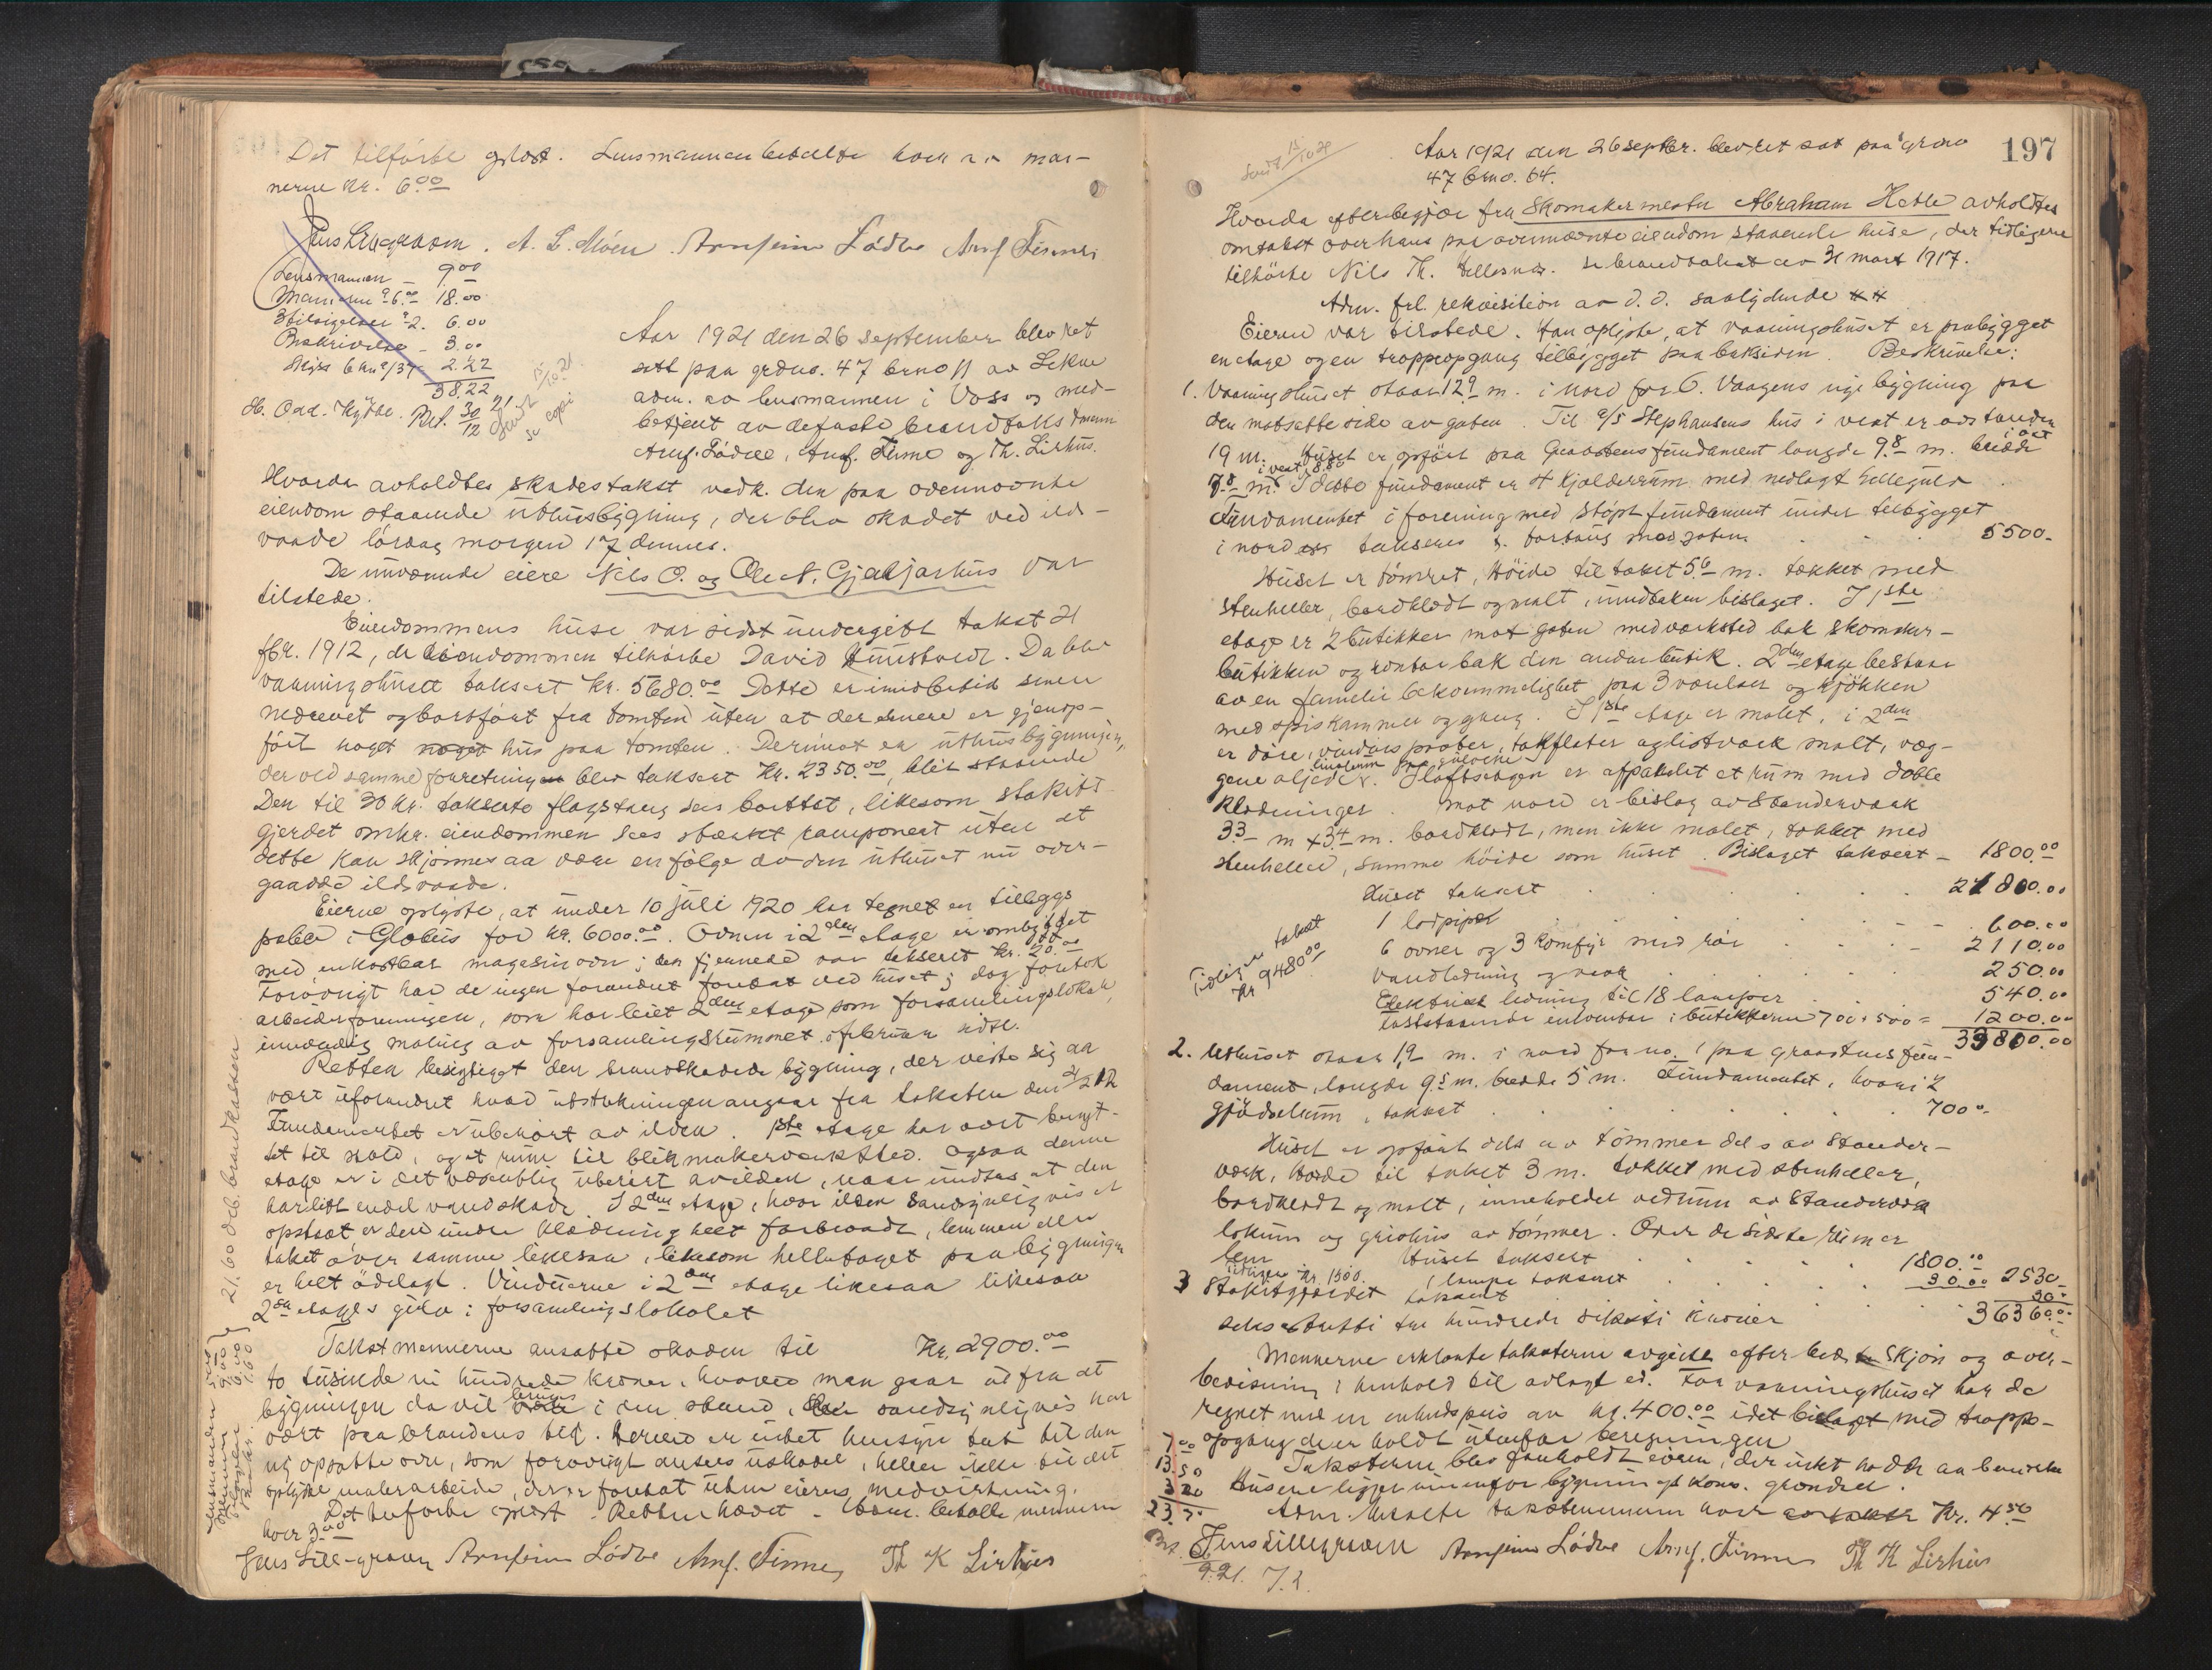 Det tilførte oplæst. Lensmannen betalte hver av mæn-
nerne kr. 6.00
Jens Lillegraven. A. L. Møen. Arnfinn Lødve Arnf. Finne
Lensmannen – 9.00
Mannerne à 6.00 18.00
3 tilsigelser à 2. 6.00
Beskrivelse – 3.00
Skyss 6 km à /37 2.22
38.22
Aar 1921 den 26 september blev ret
satt paa grdno. 47 brno 11 av Lekve
adm. av lensmannen i Voss og med-
betjent av de faste brandtakstmenn
Arnf. Lødve, Arnf. Finne og Th. Lirhus.
Hvorda avholdtes skadestakst vedk. den paa ovennævnte
eiendom staaende uthusbygning, der blev skadet ved ild-
vaade lørdag morgen 17 dennes.
De nuværende eiere Nils O. og Ole N. Gjerljarhus var
tilstede.
Eiendommens huse var sidst undergitt takst 21
fbr. 1912, da eiendommen tilhørte David Kunstvedt. Da blev
vaaningshuset taksert kr. 5680.00 Dette er imidlertid senere
nedrevet og bortført fra tomten uten at der senere er gjenop-
ført noget hus paa tomten. Derimot er uthusbygningen,
der ved samme forretning blev taksert Kr. 2350.00, blit staaende
Den til 30 kr. takserte flagstang sees borttat, likesom stakitt-
gjerdet omkr. eiendommen sees stærkt ramponert uten at
dette kan skjønnes aa være en følge av den uthuset nu over-
gaadde ildvaade.
Eierne oplyste, at under 10 juli 1920 har tegnet en tillægs
police i Globus for kr. 6000.00. Ovnen i 2den etage er ombyttet
med en kostbar magasinovn; den fjernede var taksert kr. 20.00
Forøvrigt har de ingen forandret foretat ved huset; dog foretok
arbeiderforeningen, som har leiet 2den etage som forsamlingslokale,
innvendig maling av forsamlingsrummet i februar sidstl.
Retten besigtiget den brandskadede bygning, der viste sig aa
vært uforandret hvad utstrekningen angaar fra taksten den 21/2 12
Fundamentet er uberørt av ilden. 1ste etage har vært benyt-
tet til stald, og et rum til blikmakerverksted. Ogsaa denne
etage er i det væsentlig uberørt av ilden, naar undtas at den
har litt endel vandskade. I 2den etage, hvor ilden sandsynligvis er
opstaat er den indre klædning helt forbrændt, lemmen eller
taket over samme likesaa, likesom helletaget paa bygningen
er helt ødelagt. Vinduerne i 2den etage likesaa likesaa
2den etages gulv i forsamlingslokalet
Takstmennerne ansatte skaden til Kr. 2900.00
to tusinde ni hundrede kroner, hvorved man gaar ut fra at
bygningen da vil bruges i den stand, den sandsynligvis har
vært paa brandens tid. Herved er intet hensyn tat til den
ny opsatte ovn, som forøvrigt ansees uskadd, heller ikke til det
oplyste malerarbeide, der er foretat uten eieres medvirkning.
Det tilførte oplæst. Retten hævet. Adm. betalte mennerne
hver 3.00
Jens Lillegraven Arnfinn Lødve Arnf. Finne Th K Lirhus
21.60 deb. brandkassen
197
Aar 1921 den 26 septbr. blev ret sat paa grdno
47 brno. 64.
Hvorda efter begjær fra Skomakermester Abraham Hetle avholdtes
omtakst over hans paa ovennævnte eiendom staaende huse, der tidligere
tilhørte Nils Th. Hellesnes. Se brandtakst av 31 mars 1917.
Adm. frl. rekvisition av d. d. saalydende
Eieren var tilstede. Han oplyste, at vaaningshuset er paabygget
en etage og en trappeopgang tilbygget paa baksiden. Beskrivelse:
1. Vaaningshuset staar 12.9 m. i nord for O. Vaagens nye bygning paa
den motsatte side av gaten. Til a/s Stephansens hus i vest er avstanden
19 m. Huset er opført paa graastens fundament længde 9.8 m. bredde i øst
7.8 m. i vest 8.80 I dette fundament er et kjælderrum med nedlagt hellegulv
Fundamentet i forening med støpt fundament under tilbygget
i nord takseres s. fortaug mot gaten 5500.-
Huset er tømret, høide til taket 5.6 m. tækket med
stenheller, bordklædt og malt, undtaken bislaget. I 1ste
etage er 2 butikker mot gaten med verksted bak skomaker-
butikken og kontor bak den anden butik. 2den etage bestaar
av en familiebekvemmelighet paa 3 værelser og kjøkken
med spiskammer og gang. I 1ste etage er malet, i 2den
er døre, vinduesposter, takflater og listverk malt, væg-
gene oljed. linoleum paa gulvene I loftsetagen er afpanelet et rum med doble
klædninger. Mot nord er bislag av standerverk
3.3 m x 3.4 m. bordklædt, men ikke malet, tækket med
stenheller, samme høide som huset. Bislaget taksert – 1800.00
Huset taksert 27800.00
1 lodpipe 600.00
6 ovner og 3 komfyr med rør 2110.00
Vandledning og vask 250.00
Elektrisk ledning til 18 lamper 540.00
Faststaaende inventar i butikkerne 700 + 500 = 1200.00
39800.00
Tidligere takst
Kr 9480.00
2. Uthuset staar 1.9 m. i nord for no. 1 paa graastens fun-
dament, længde 9.5 m. bredde 5 m. Fundamentet, hvori 2
gjødselrum, taksert 700.-
Huset er opført dels av tømmer dels av stander-
verk, høide til taket 3 m. tækket med stenheller,
bordklædt og malt, inneholder vedrum av standerverk
lokum og grishus av tømmer. Over de sidste rum er
lem Huset taksert 1800.00
tidligere kr. 1500. 1 lampe taksert 30.00 2530.-
3 Stakitgjerdet taksert 30.-
36360.00
seks &amp; tretti tre hundrede seksti kroner
Mennerne erklærte taksterne avgitt efter bedste skjøn og over-
bevisning i henhold til avlagt ed. For vaaningshuset har de
regnet med en enhetspris av kr. 400.00 idet bislaget med trappe-
opgang da er holdt utenfor beregningen
Taksterne blev foreholdt eieren, der intet hadde aa bemerke
Husene ligger innenfor bygningskoms. grændser.
Adm. betalte takstmennene hver Kr. 4.50
Jens Lillegraven Arnfinn Lødve Arnf. Finne Th K Lirhus